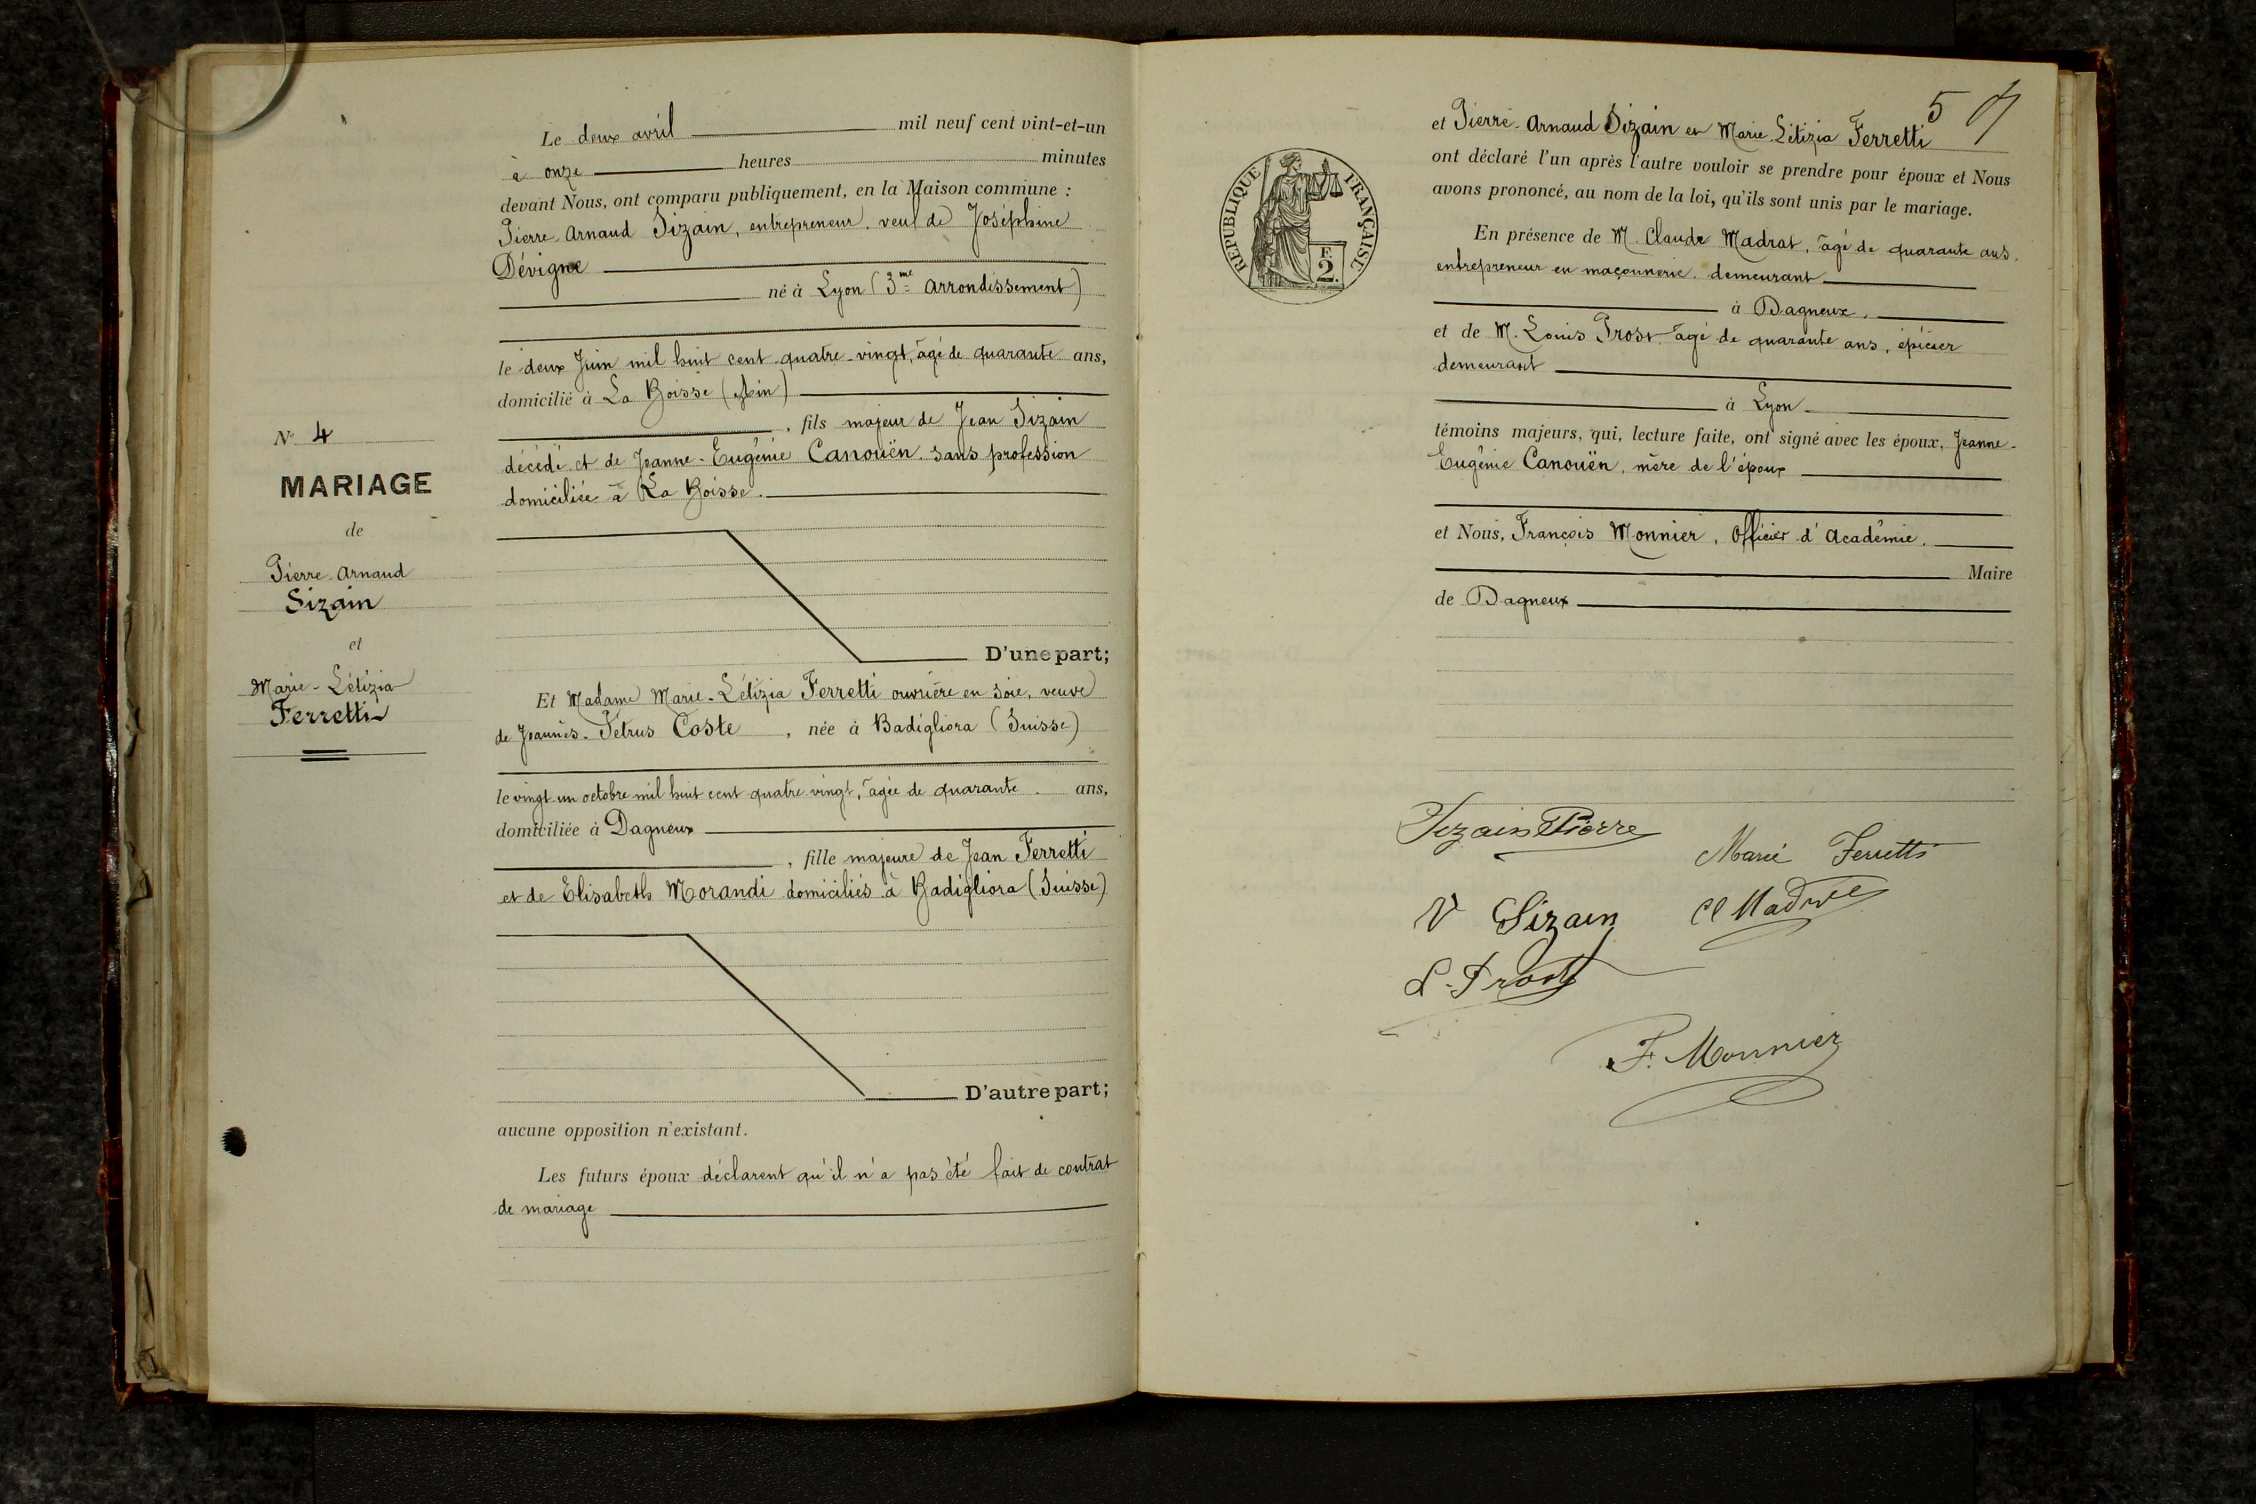 Le deux avril mil neuf cent vint-et-un
à onze heures minutes
devant Nous, ont comparu publiquement, en la Maison commune :
Pierre-Arnaud Sizain, entrepreneur, veuf de Joséphine
Dévigne
né à Lyon (3me Arrondissement)
le deux Juin mil huit cent quatre-vingt, âgé de quarante ans,
domicilié à La Boisse (Ain)
, fils majeur de Jean Sizain
décédé et de Jeanne-Eugénie Canouën sans profession
domiciliée à La Boisse.
N° 4
MARIAGE
de
Pierre-Arnaud
Sizain
et
Marie-Létizia
Ferretti
D'une part;
Et Madame Marie-Létizia Ferretti ouvrière en soie, veuve
de Jeannès-Pétrus Coste , née à Badigliora (Suisse)
le vingt-un octobre mil huit cent quatre vingt, âgée de quarante ans,
domiciliée à Dagneux
, fille majeure de Jean Ferretti
et de Elisabeth Morandi domiciliés à Badigliora (Suisse)
D'autre part;
aucune opposition n'existant.
Les futurs époux déclarent qu'il n'a pas été fait de contrat
de mariage
5
RÉPUBLIQUE FRANÇAISE
F.
2.
et Pierre-Arnaud Sizain et Marie-Létizia Ferretti
ont déclaré l'un après l'autre vouloir se prendre pour époux et Nous
avons prononcé, au nom de la loi, qu'ils sont unis par le mariage.
En présence de M. Claude Madrat, âgé de quarante ans,
entrepreneur en maçonnerie demeurant
à Dagneux,
et de M. Louis Prost âgé de quarante ans, épicier
demeurant
à Lyon
témoins majeurs, qui, lecture faite, ont signé avec les époux, Jeanne-
Eugénie Canouën, mère de l'époux
et Nous, François Monnier, Officier d'Académie,
Maire
de Dagneux
Sizain Pierre
Marie Ferretti
V Sizain
L. Prost
F. Monnier